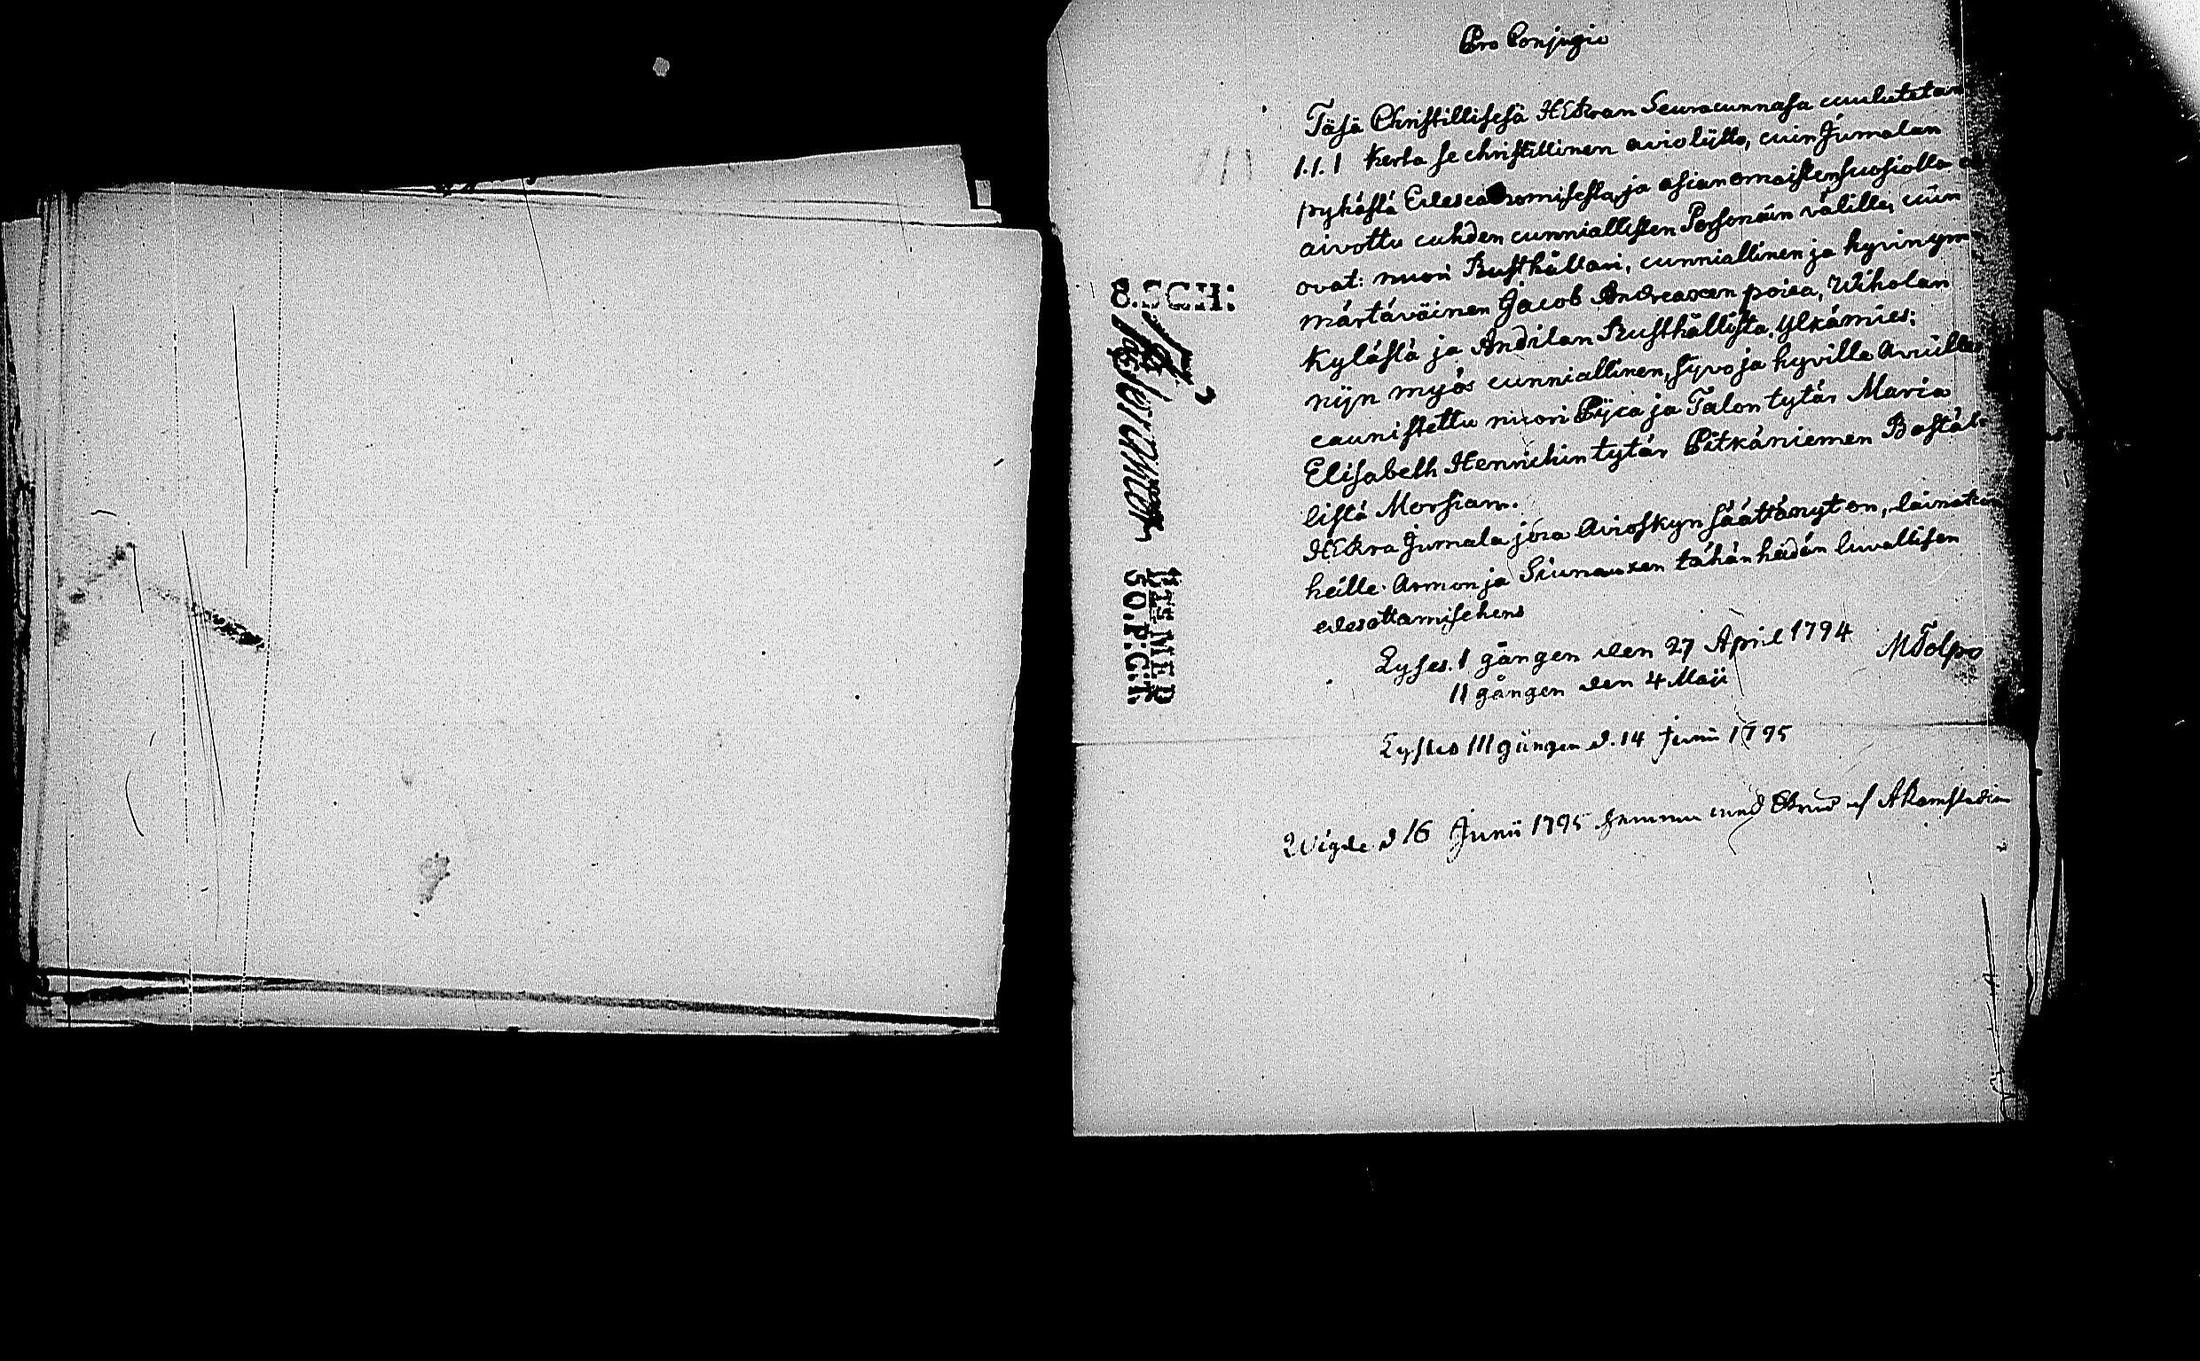 Pro Conjugio
Täsä Christillisesä HERran Seuracunnasa cuulutetan
1.1.1 Kerta se christillinen avioliitto, cuin Jumalan
pyhästä Edescadzomisesta, ja asianomaisten suosiolla on
aivottu cahden cunniallisten Personain välille, cuin
ovat: nuori Rusthållari, cunniallinen ja hyvinym-
märtäväinen Jacob Andreaxen poica, Wiholan
Kylästä ja Andilan Rusthållista, Ylkämies:
nijn myös cunniallinen, syvo ja hyville Avuille
caunistettu nuori Pijca ja Talon tytär Maria
Elisabeth Henrichin tytär Pitkäniemen Bostäl-
listä Morsian.
HERra Jumala joca Avioskyn säättänyt on, lainatcon
heille Armon ja Siunauxen tähän heidän luvallisen
edesottamisehens
Lyses. I gången den 27 April 1794 MTolpo
II gången den 4 Maii
Lystes III gången d. 14 Junii 1795
Wigde d 16 Junii 1795 hemma med Brud af
8.SCH:
50.P:C:T.